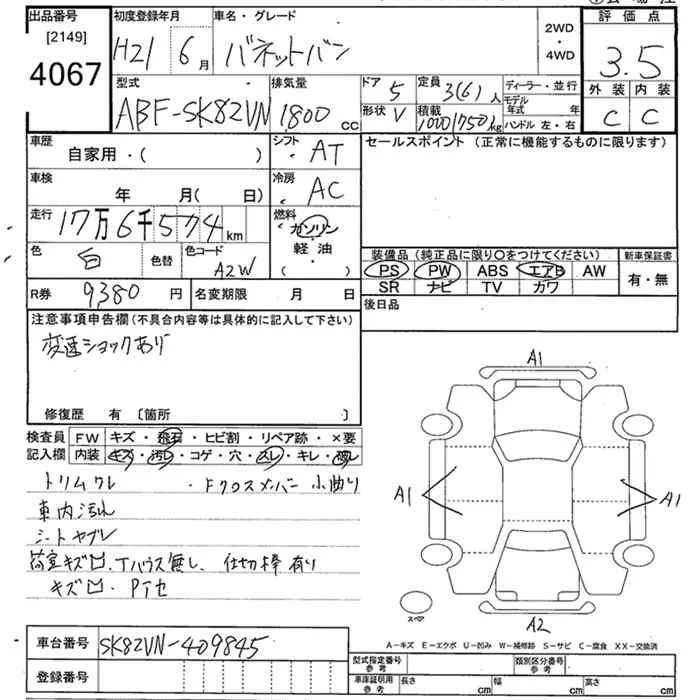 出品番号 初度登録年月 車名・グレード 評価点
[2149] 2WD
4067 H21 6月 バネットバン ・ 3.5
4WD
外装 内装
型式 排気量 ドア 5 定員 3(6)人 ディーラー・並行 C C
ABF-SK82VN 1800cc 形状 V 積載 1000(750)kg モデル年式 年
ハンドル 左・右
車歴 シフト セールスポイント(正常に機能するものに限ります)
自家用・( ) AT
車検 冷房
年 月(日) AC
走行 燃料
17万6千574km ガソリン
軽油
( )
色 白 色替 色コード A2W
装備品(純正品に限り○をつけてください) 新車保証書
PS PW ABS エアB AW 有・無
SR ナビ TV カワ
R券 9380円 名変期限 月 日
後日品
注意事項申告欄(不具合内容等は具体的に記入して下さい)
変速ショックあり
修復歴 有 〔箇所 〕
検査員 FW キズ・飛石・ヒビ割・リペア跡・×要
記入欄 内装 キズ・汚レ・コゲ・穴・スレ・キレ・破レ
トリムワレ ・Fクロスメンバー小曲り
車内汚れ
シートヤブレ
荷室キズ凹、Tハウス無し、仕切棒有り
キズ凹・Pたセ
A1
A1
A1
スペア
A2
A-キズ E-エクボ U-凹み W-補修跡 S-サビ C-腐食 XX-交換済
車台番号 SK82VN-409845
型式指定番号 参考 類別区分番号 参考
登録番号
車庫証明用 参考 長さ cm 幅 cm 高さ cm